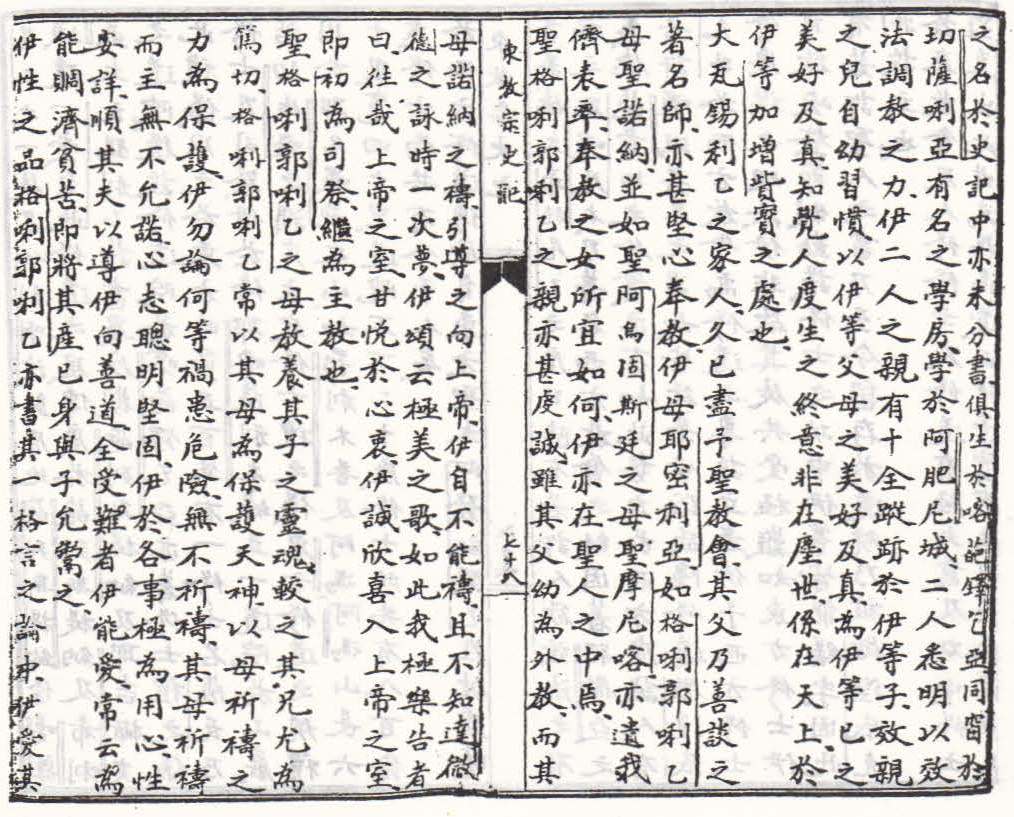 之名於史記中亦未分書俱生於喀葩鐸乞亞同窗於
切薩唎亞有名之學房學於阿肥尼城二人悉明以效
法調教之力伊二人之親有十全蹤跡於伊等子效親
之兒自幼習慣以伊等父母之美好及真為伊等已之
美好及真知覺人度生之終意非在塵世係在天上於
伊等加增貲寳之處也
大瓦錫利乙之家人久已盡予聖教會其父乃善談之
著名師亦甚堅心奉教伊母耶密利亞如格唎郭唎乙
母聖諾納並如聖阿烏固斯廷之母聖摩尼喀亦遺我
儕表率奉教之女所宜如何伊亦在聖人之中焉
聖格唎郭唎乙之親亦甚虔誠雖其父幼為外教而其
東教宗史記
七十八
母諾納之禱引導之向上帝伊自不能禱且不知達微
德之詠時一次夢伊頌云極美之歌如此我極樂告者
曰徃哉上帝之室甘悦於心衷伊誠欣喜入上帝之室
即初為司祭繼為主教也
聖格唎郭唎乙之母教養其子之靈魂較之其兄尤為
篤切格唎郭唎乙常以其母為保護天神以母祈禱之
力為保護伊勿論何等禍患危險無不祈禱其母祈禱
而主無不允諾心志聰明堅固伊於各事極為用心性
安詳順其夫以導伊向善道全受難者伊能愛常云為
能賙濟貧苦即將其產已身與子允鬻之
伊性之品格唎郭唎乙亦書其一格言之論末伊愛其